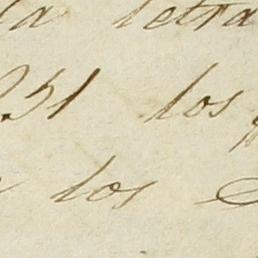 la letra
251 los
los